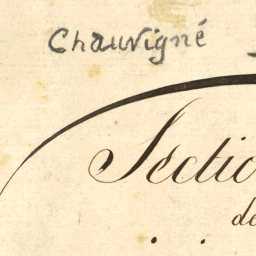 Chauvigné
Sectio
de